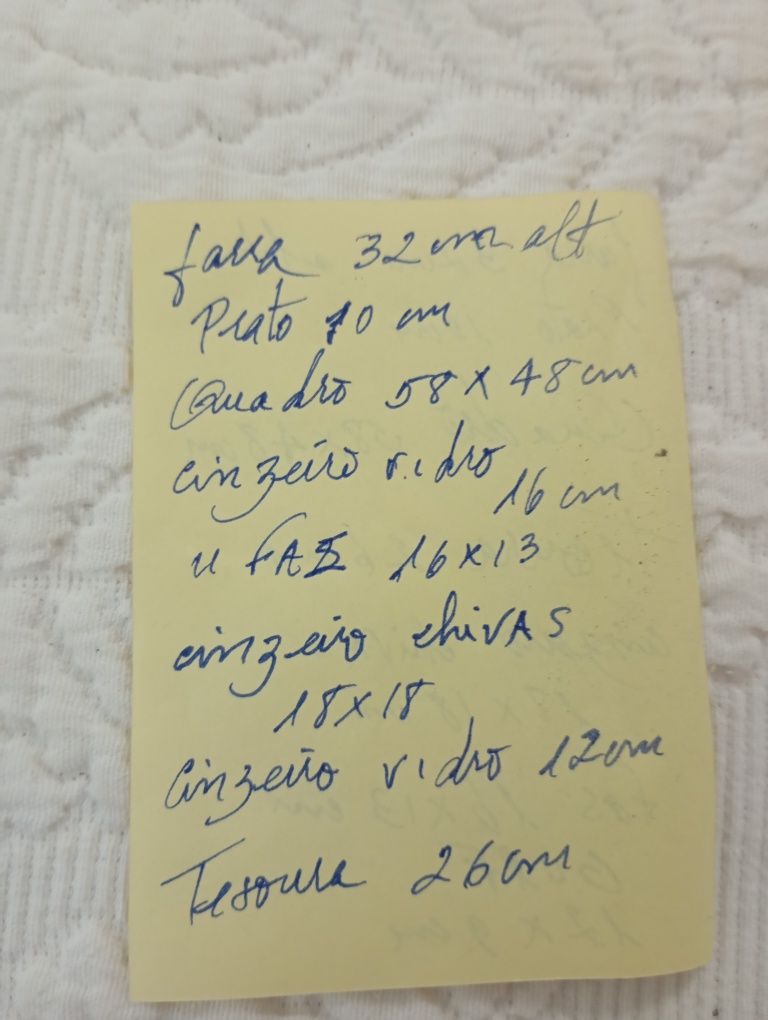 Jarra 32 cm alt
Prato 10 cm
Quadro 58 x 48 cm
cinzeiro vidro
16 cm
u FAS 16x13
cinzeiro chivAS
18x18
Cinzeiro vidro 12cm
Tesoura 26cm